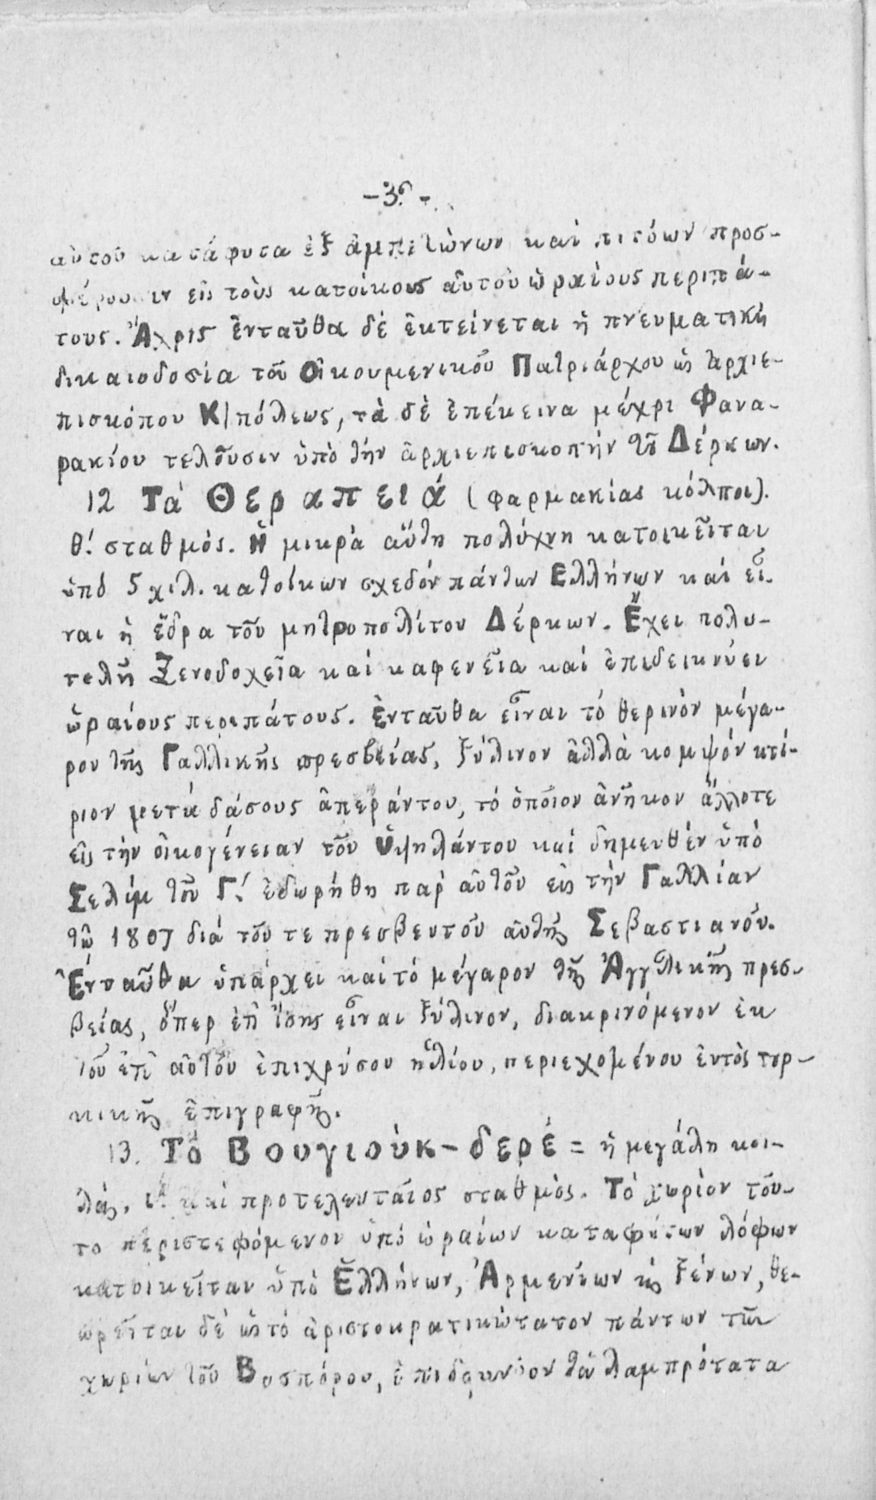 αὐτοῦ κατάφυτα ἐξ ἀμπελώνων καὶ πιτύων προσ-
φέρουσιν εἰς τοὺς κατοίκους αὐτοῦ ὡραίους περιπά-
τους. Ἄχρις ἐνταῦθα δὲ ἐκτείνεται ἡ πνευματικὴ
δικαιοδοσία τοῦ Οἰκουμενικοῦ Πατριάρχου ὡς Ἀρχιε-
πισκόπου Κ/πόλεως, τὰ δὲ ἐπέκεινα μέχρι Φανα-
ρακίου τελοῦσιν ὑπὸ τὴν ἀρχιεπισκοπὴν τοῦ Δέρκων.
12 Τὰ Θεραπειά (φαρμακίας κόλποι).
θ.′ σταθμὸς. Ἡ μικρὰ αὕτη πολύχνη κατοικεῖται
ὑπὸ 5 χιλ. κατοίκων σχεδὸν πάντων Ἑλλήνων καὶ εἶ-
ναι ἡ ἕδρα τοῦ μητροπολίτου Δέρκων. Ἔχει πολυ-
τελῆ Ξενοδοχεῖα καὶ καφενεῖα καὶ ἐπιδεικνύει
ὡραίους περιπάτους. Ἐνταῦθα εἶναι τὸ θερινὸν μέγα-
ρον τῆς Γαλλικῆς πρεσβείας, ξύλινον ἀλλὰ κομψὸν κτί-
ριον μετὰ δάσους ἀπεράντου, τὸ ὁποῖον ἀνῆκον ἄλλοτε
εἰς τὴν οἰκογένειαν τοῦ Ὑψηλάντου καὶ δημευθὲν ὑπὸ
Σελὶμ τοῦ Γ.′ ἐδωρήθη παρ' αὐτοῦ εἰς τὴν Γαλλίαν
τῷ 1807 διὰ τοῦ τε πρεσβευτοῦ αὐτῆς Σεβαστιανοῦ.
Ἐνταῦθα ὑπάρχει καὶ τὸ μέγαρον τῆς Ἀγγλικῆς πρεσ-
βείας, ὅπερ ἐπ' ἴσης εἶναι ξύλινον, διακρινόμενον ἐκ
τοῦ ἐπ' αὐτοῦ ἐπιχρύσου ἡλίου, περιεχομένου ἐντὸς τυρ-
κικῆς ἐπιγραφῆς.
13. Τὸ Βουγιοὺκ-δερέ = ἡ μεγάλη κοι-
λὰς, ι.′ καὶ προτελευταῖος σταθμὸς. Τὸ χωρίον τοῦ-
το περιστεφόμενον ὑπὸ ὡραίων καταφύτων λόφων
κατοικεῖται ὑπὸ Ἑλλήνων, Ἀρμενίων κὶ ξένων, θε-
ωρεῖται δὲ ὡς τὸ ἀριστοκρατικώτατον πάντων τῶν
χωρίων τοῦ Βοσπόρου, ἐπιδεικνύον τὰ λαμπρότατα